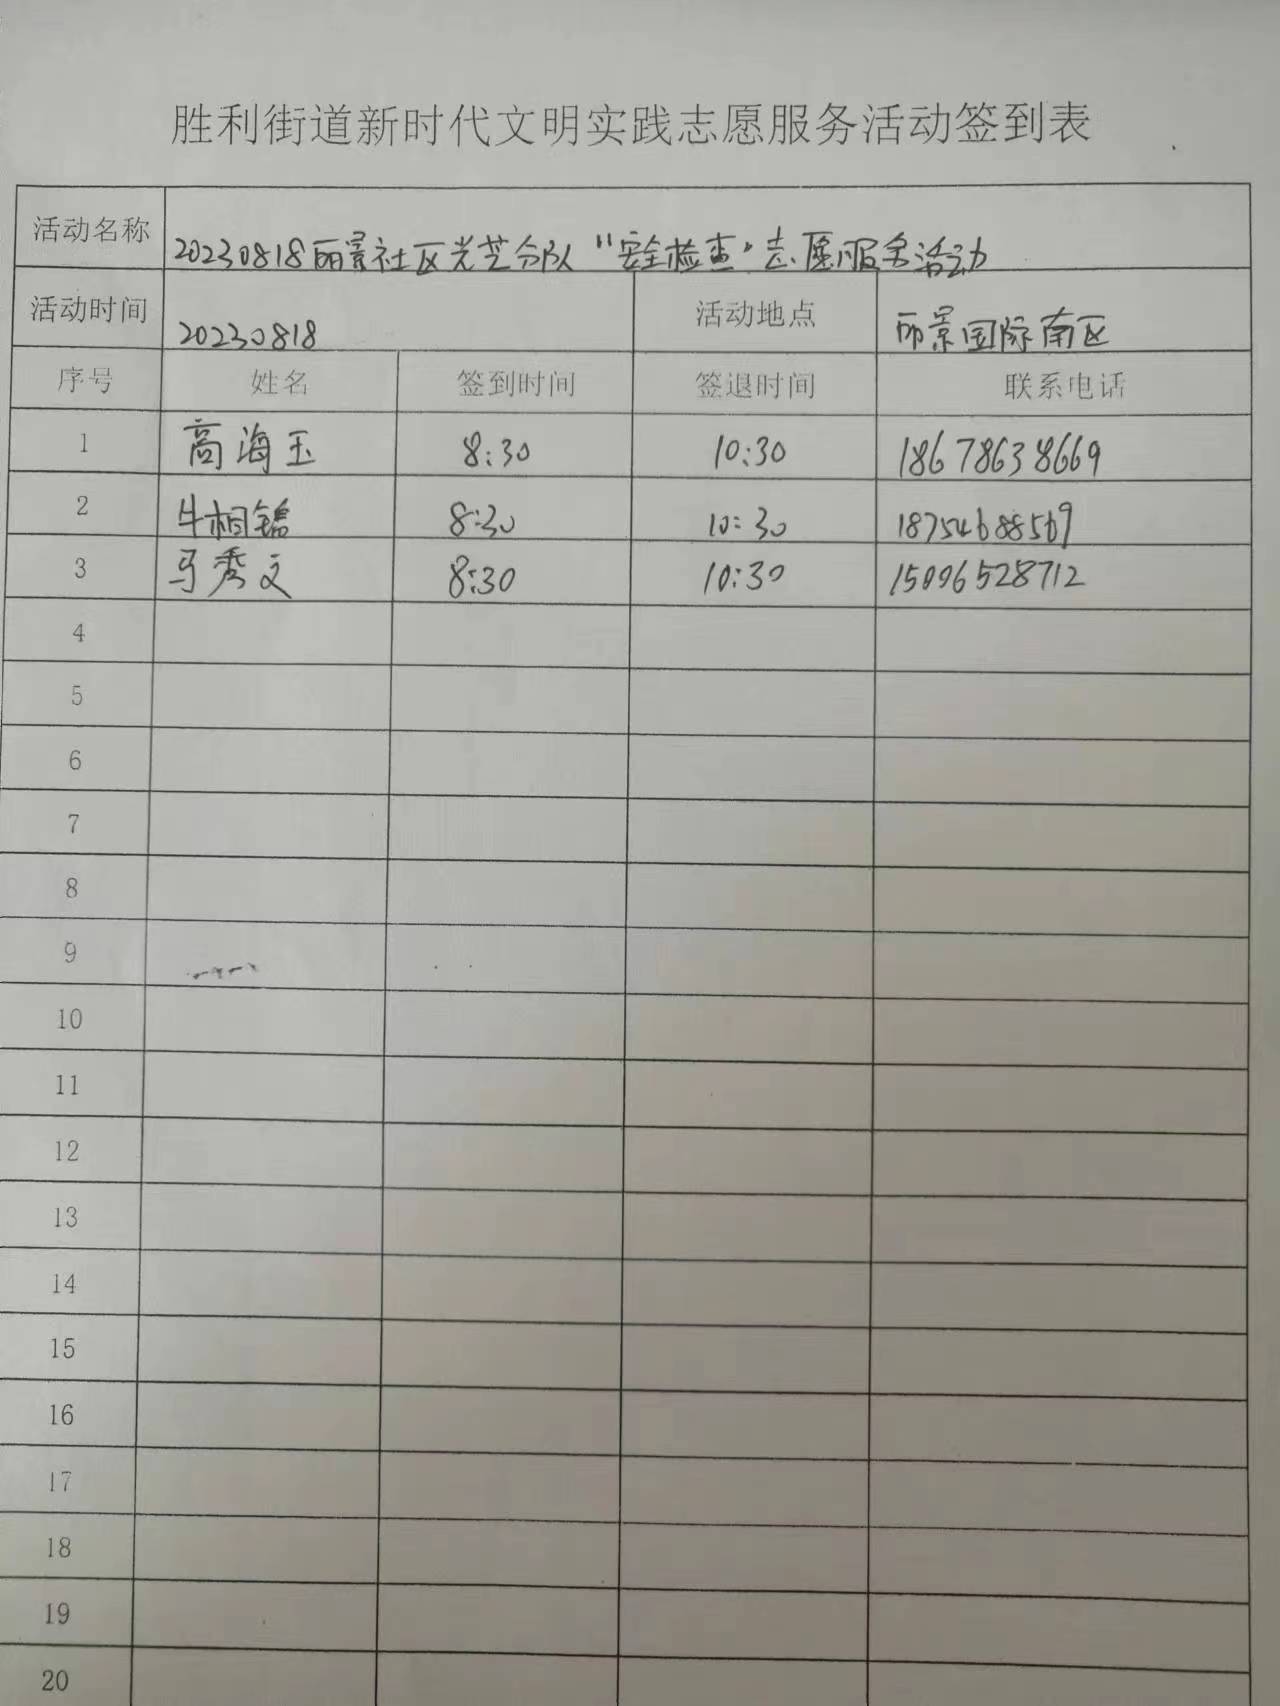 胜利街道新时代文明实践志愿服务活动签到表
活动名称 20230818丽景社区光芒分队“安全检查”志愿服务活动
活动时间 20230818 活动地点 丽景国际南区
序号 姓名 签到时间 签退时间 联系电话
1 高海玉 8:30 10:30 18678638669
2 牛相 8:30 10:30 18754688569
3 马秀文 8:30 10:30 15096528712
4
5
6
7
8
9
10
11
12
13
14
15
16
17
18
19
20